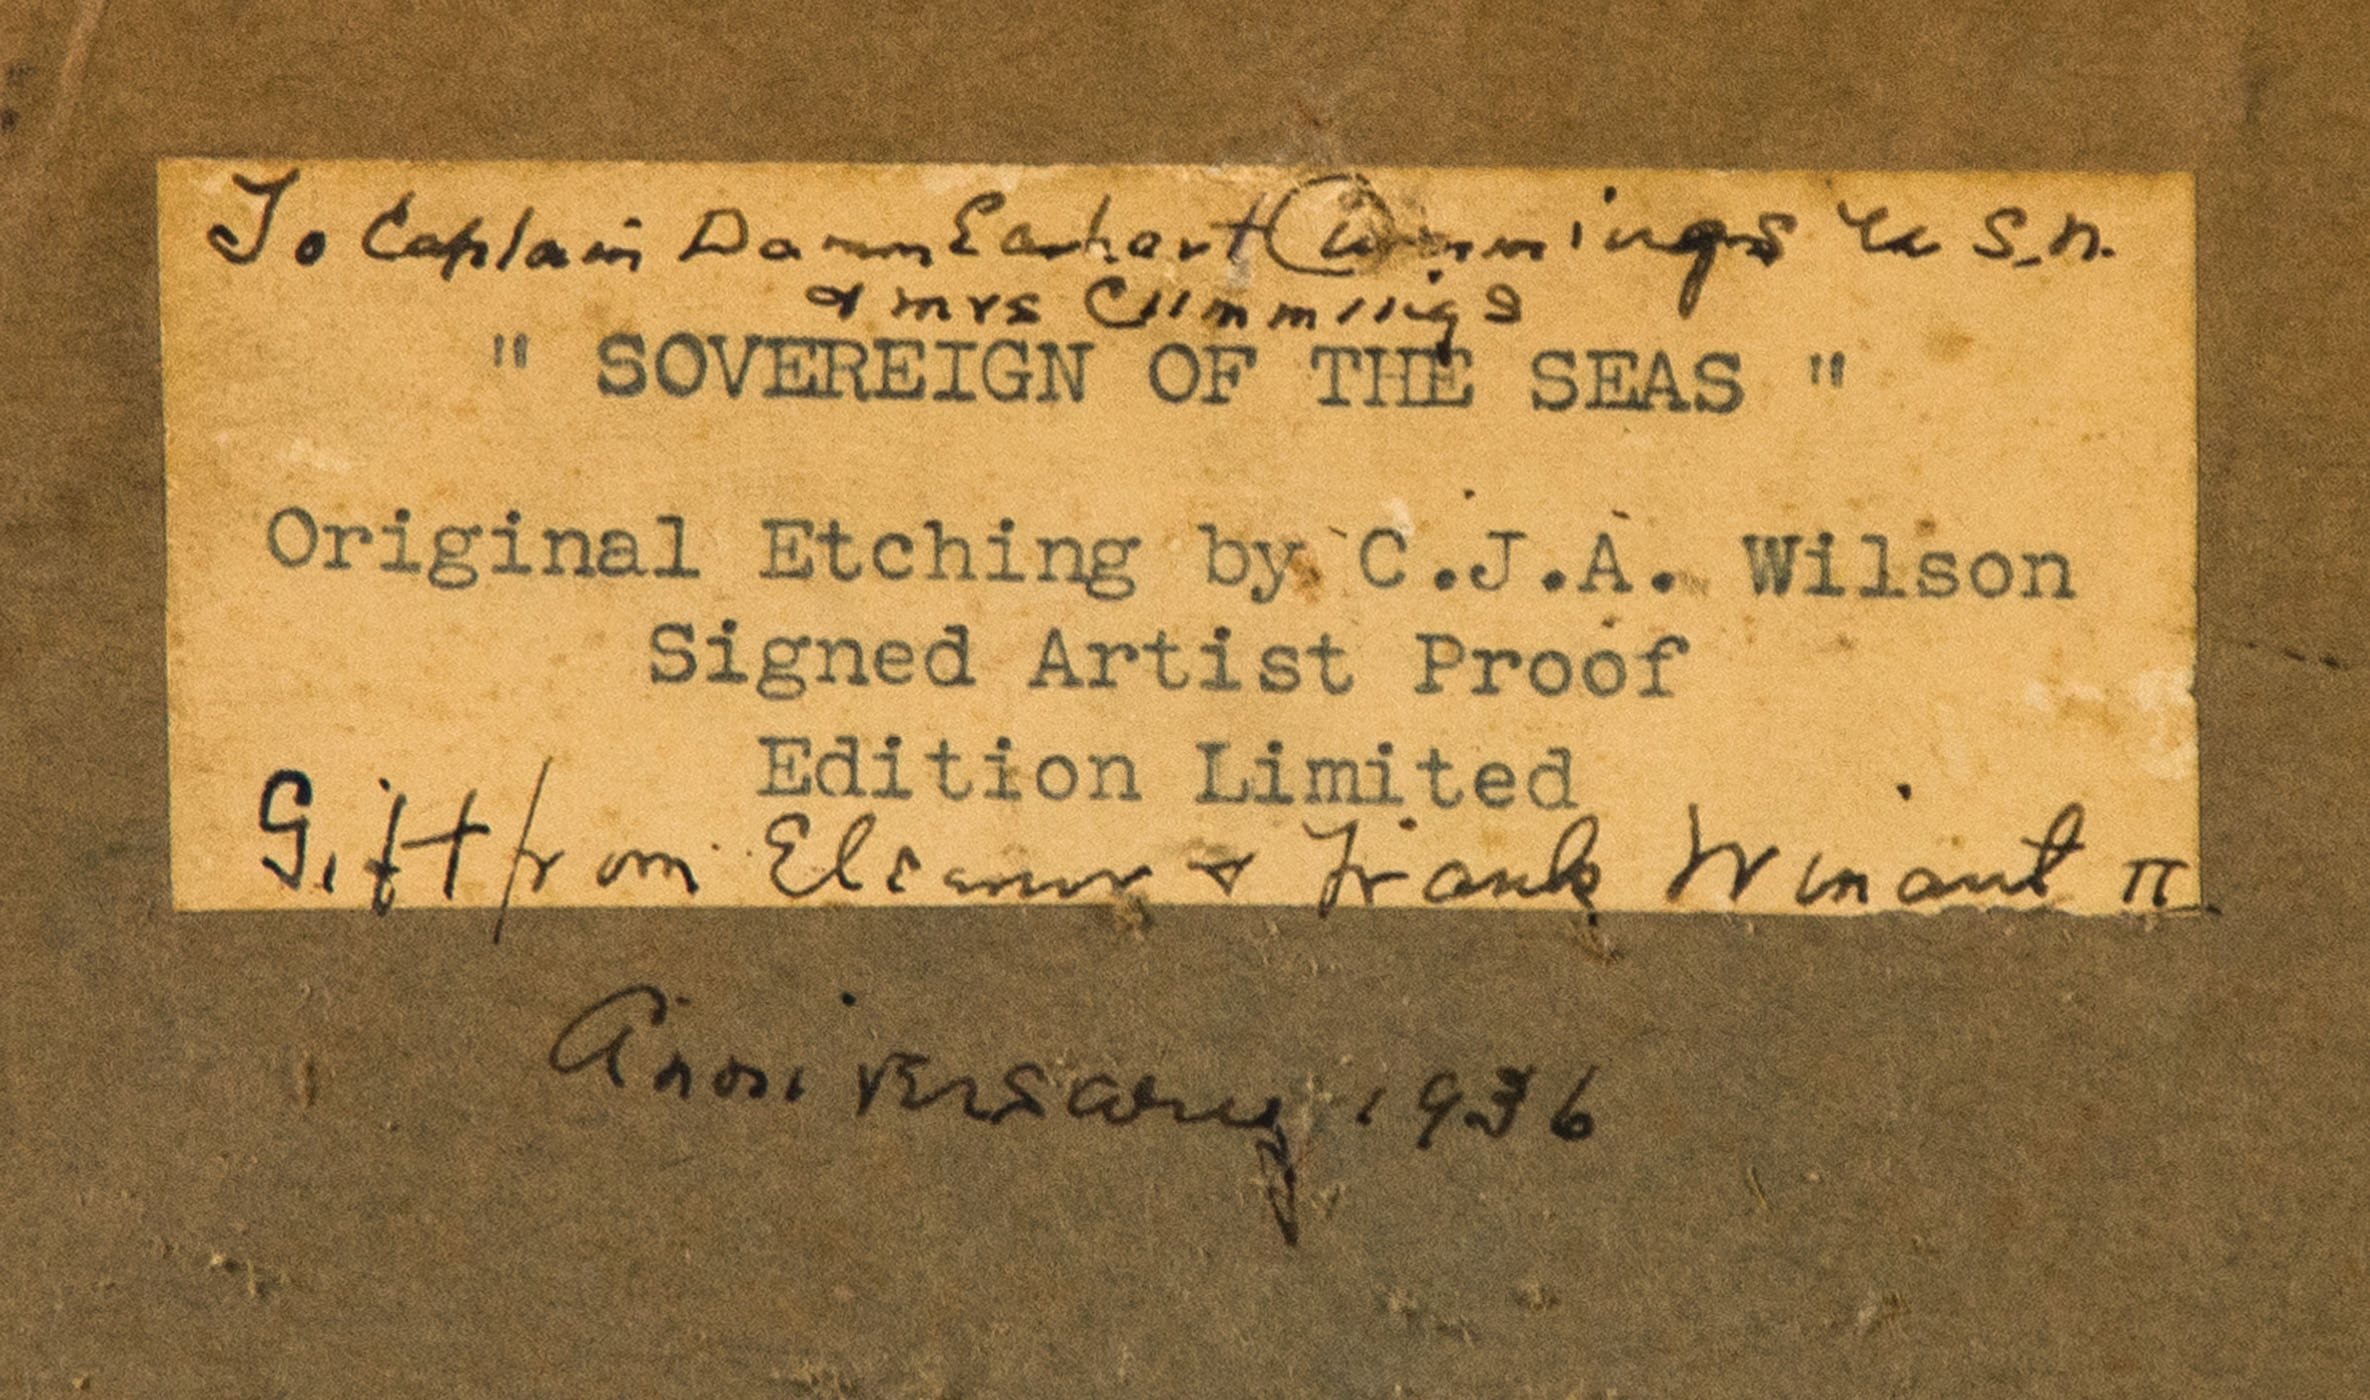 To Captain Damon Earhart Cummings U.S.N.
& Mrs Cummings
" SOVEREIGN OF THE SEAS "
Original Etching by C.J.A. Wilson
Signed Artist Proof
Edition Limited
Gift from Eleanor & Frank Winant II
Anniversary 1936